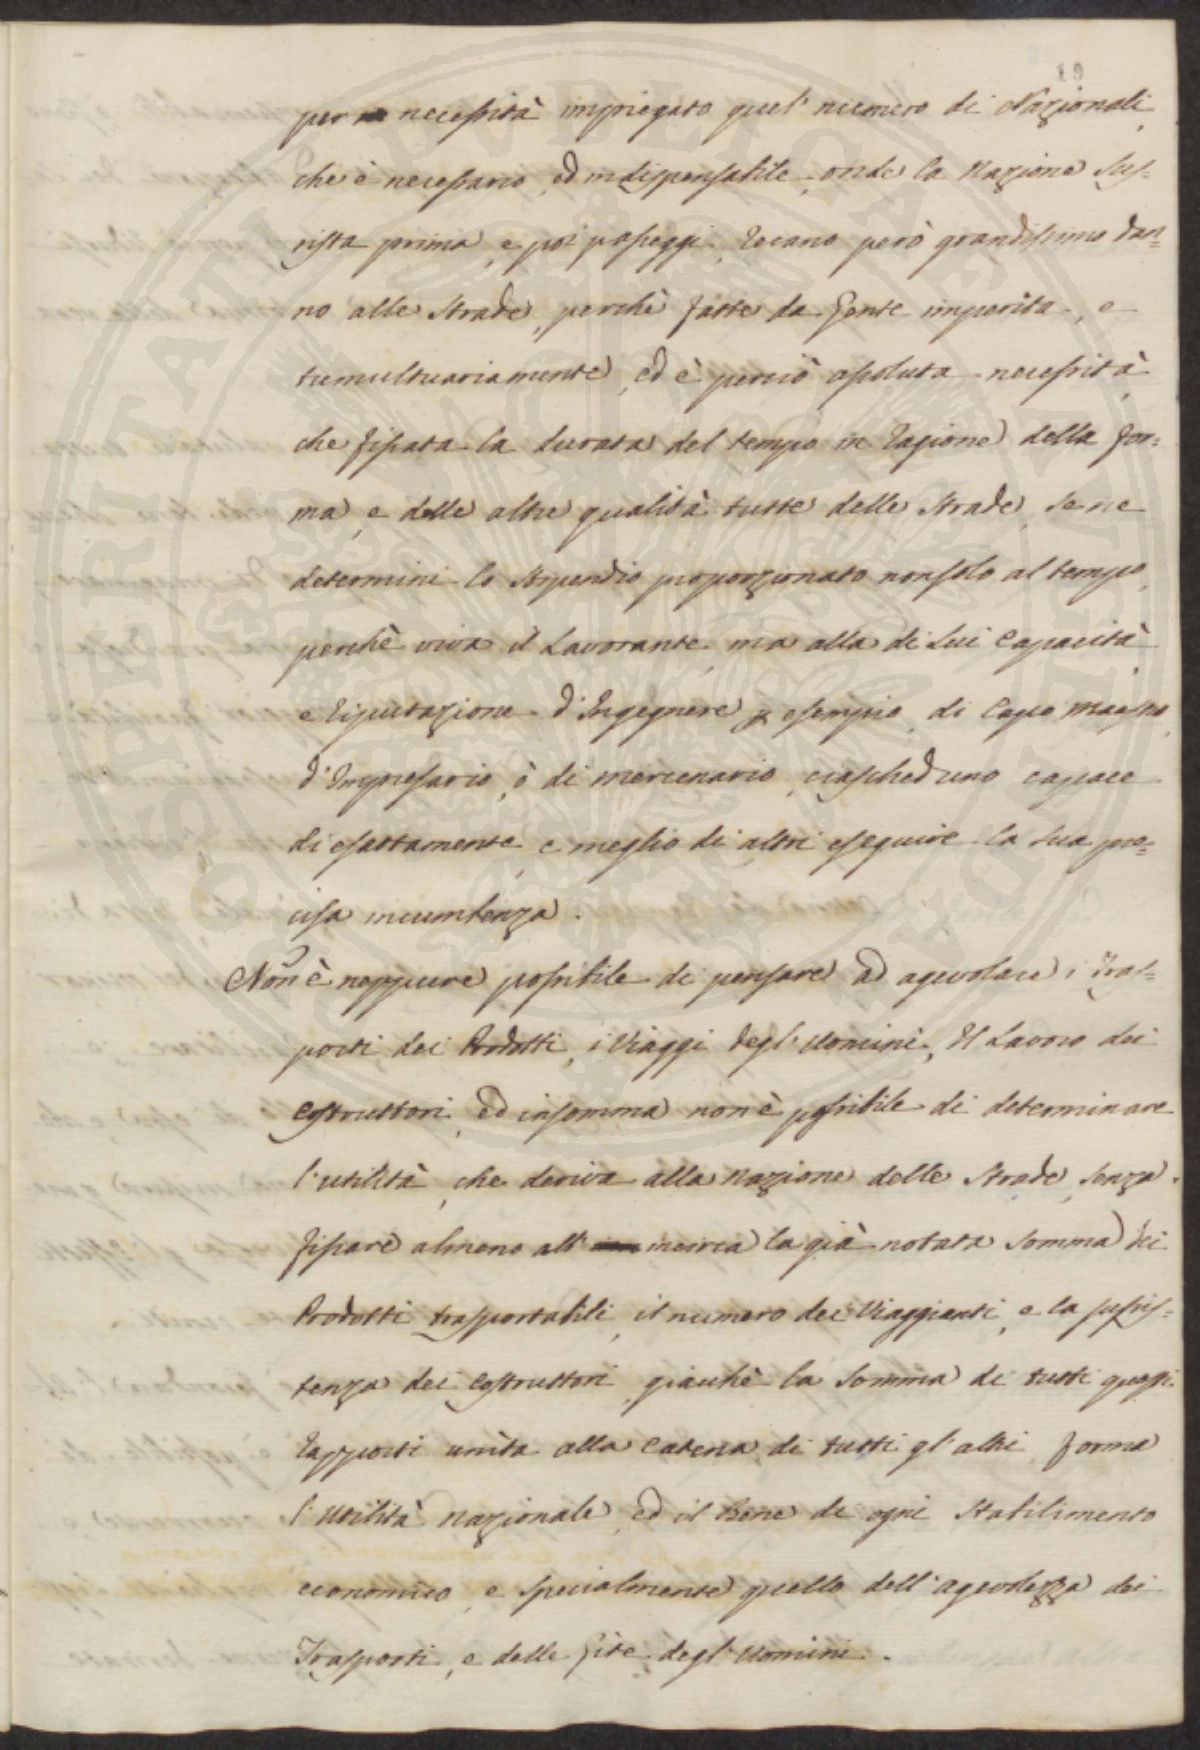 19
per necessità impiegato quel numero di Nazionali,
che è necessario, ed indispensabile, onde la Nazione sus=
sista prima, e poi passeggi, recano però grandissimo dan=
no alle Strade, perchè fatte da Gente imperita, e
tumultuariamente, ed è perciò assoluta necessità,
che fissata la durata del tempo in ragione della for=
ma, e delle altre qualità tutte delle Strade, se ne
determini lo Stipendio proporzionato non solo al tempo,
perchè viva il Lavorante, ma alla di Lui Capacità,
e riputazione d'Ingegnere p esempio, di Capo Maestro,
d'Impresario, ò di mercenario, ciascheduno capace
di esattamente, e meglio di altri eseguire la sua pre=
cisa incumbenza.
Non è neppure possibile di pensare ad agevolare i Tras=
porti dei Prodotti, i Viaggi degl'Uomini, Il Lavoro dei
Costruttori, ed insomma non è possibile di determinare
l'utilità, che deriva alla Nazione delle Strade, senza
fissare almeno all' incirca la già notata Somma dei
Prodotti trasportabili, il numero dei Viaggianti, e la sussis=
tenza dei Costruttori, giacchè la Somma di tutti questi
rapporti unita alla Catena di tutti gl'altri, forma
l'Utilità Nazionale, ed il Bene di ogni Stabilimento
economico, e specialmente quello dell'agevolezza dei
Trasporti, e delle Gite degl'Uomini.
PROSPERITATI PVBLICAE AVGENDAE